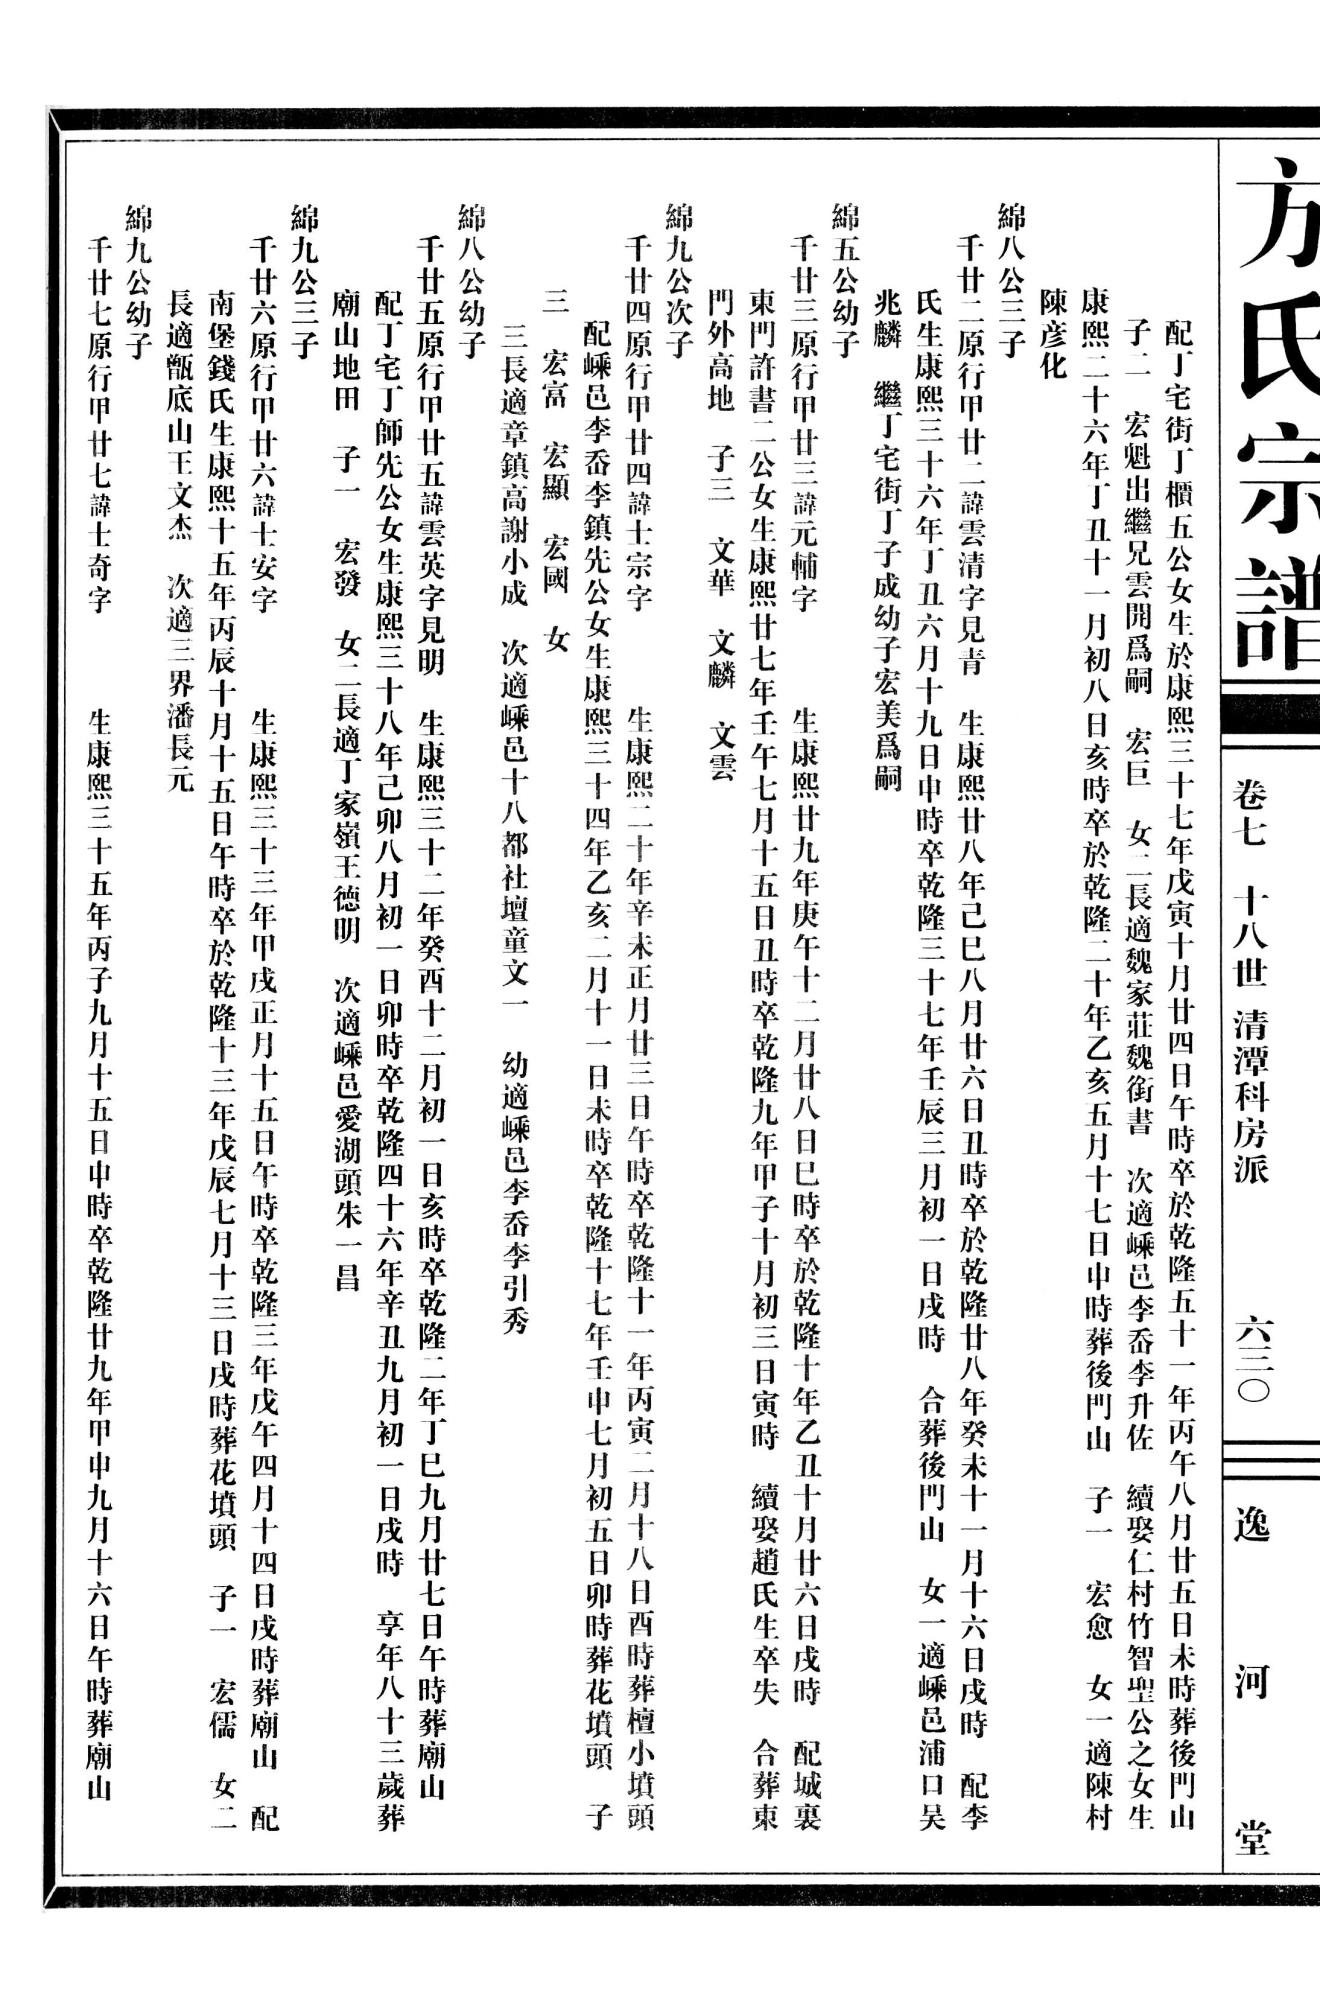 方氏宗譜
卷七 十八世 清潭科房派 六三〇
逸河堂
配丁宅街丁櫃五公女生於康熙三十七年戊寅十月廿四日午時卒於乾隆五十一年丙午八月廿五日未時葬後門山
子二 宏魁出繼兄雲開爲嗣 宏巨 女二長適魏家莊魏銜書 次適嵊邑李岙李升佐 續娶仁村竹智聖公之女生
康熙二十六年丁丑十一月初八日亥時卒於乾隆二十年乙亥五月十七日申時葬後門山 子一 宏愈 女一適陳村
陳彦化
綿八公三子
千廿二原行甲廿二諱雲清字見青 生康熙廿八年己巳八月廿六日丑時卒於乾隆廿八年癸未十一月十六日戌時 配李
氏生康熙三十六年丁丑六月十九日申時卒乾隆三十七年壬辰三月初一日戌時 合葬後門山 女一適嵊邑浦口吴
兆麟 繼丁宅街丁子成幼子宏美爲嗣
綿五公幼子
千廿三原行甲廿三諱元輔字 生康熙廿九年庚午十二月廿八日巳時卒於乾隆十年乙丑十月廿六日戌時 配城裏
東門許書二公女生康熙廿七年壬午七月十五日丑時卒乾隆九年甲子十月初三日寅時 續娶趙氏生卒失 合葬東
門外高地 子三 文華 文麟 文雲
綿九公次子
千廿四原行甲廿四諱士宗字 生康熙二十年辛未正月廿三日午時卒乾隆十一年丙寅二月十八日酉時葬檀小墳頭
配嵊邑李岙李鎮先公女生康熙三十四年乙亥二月十一日未時卒乾隆十七年壬申七月初五日卯時葬花墳頭 子
三 宏富 宏顯 宏國 女
三長適章鎮高謝小成 次適嵊邑十八都社壇童文一 幼適嵊邑李岙李引秀
綿八公幼子
千廿五原行甲廿五諱雲英字見明 生康熙三十二年癸酉十二月初一日亥時卒乾隆二年丁巳九月廿七日午時葬廟山
配丁宅丁師先公女生康熙三十八年己卯八月初一日卯時卒乾隆四十六年辛丑九月初一日戌時 享年八十三歲葬
廟山地田 子一 宏發 女二長適丁家嶺王德明 次適嵊邑愛湖頭朱一昌
綿九公三子
千廿六原行甲廿六諱士安字 生康熙三十三年甲戌正月十五日午時卒乾隆三年戊午四月十四日戌時葬廟山 配
南堡錢氏生康熙十五年丙辰十月十五日午時卒於乾隆十三年戊辰七月十三日戌時葬花墳頭 子一 宏儒 女二
長適甑底山王文杰 次適三界潘長元
綿九公幼子
千廿七原行甲廿七諱士奇字 生康熙三十五年丙子九月十五日申時卒乾隆廿九年甲申九月十六日午時葬廟山